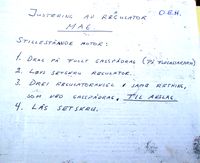 JUSTERING AV REGULATOR O.E.H.
MAG.
STILLESTÅENDE MOTOR:
1. DRAG PÅ FULLT GASSPÅDRAG
2. LØYS SETSKRU REGULATOR.
3. DREI REGULATORAKSEL I SAME RETNING,
SOM VED GASSPÅDRAG, TIL ANSLAG.
4. LÅS SETSKRU.